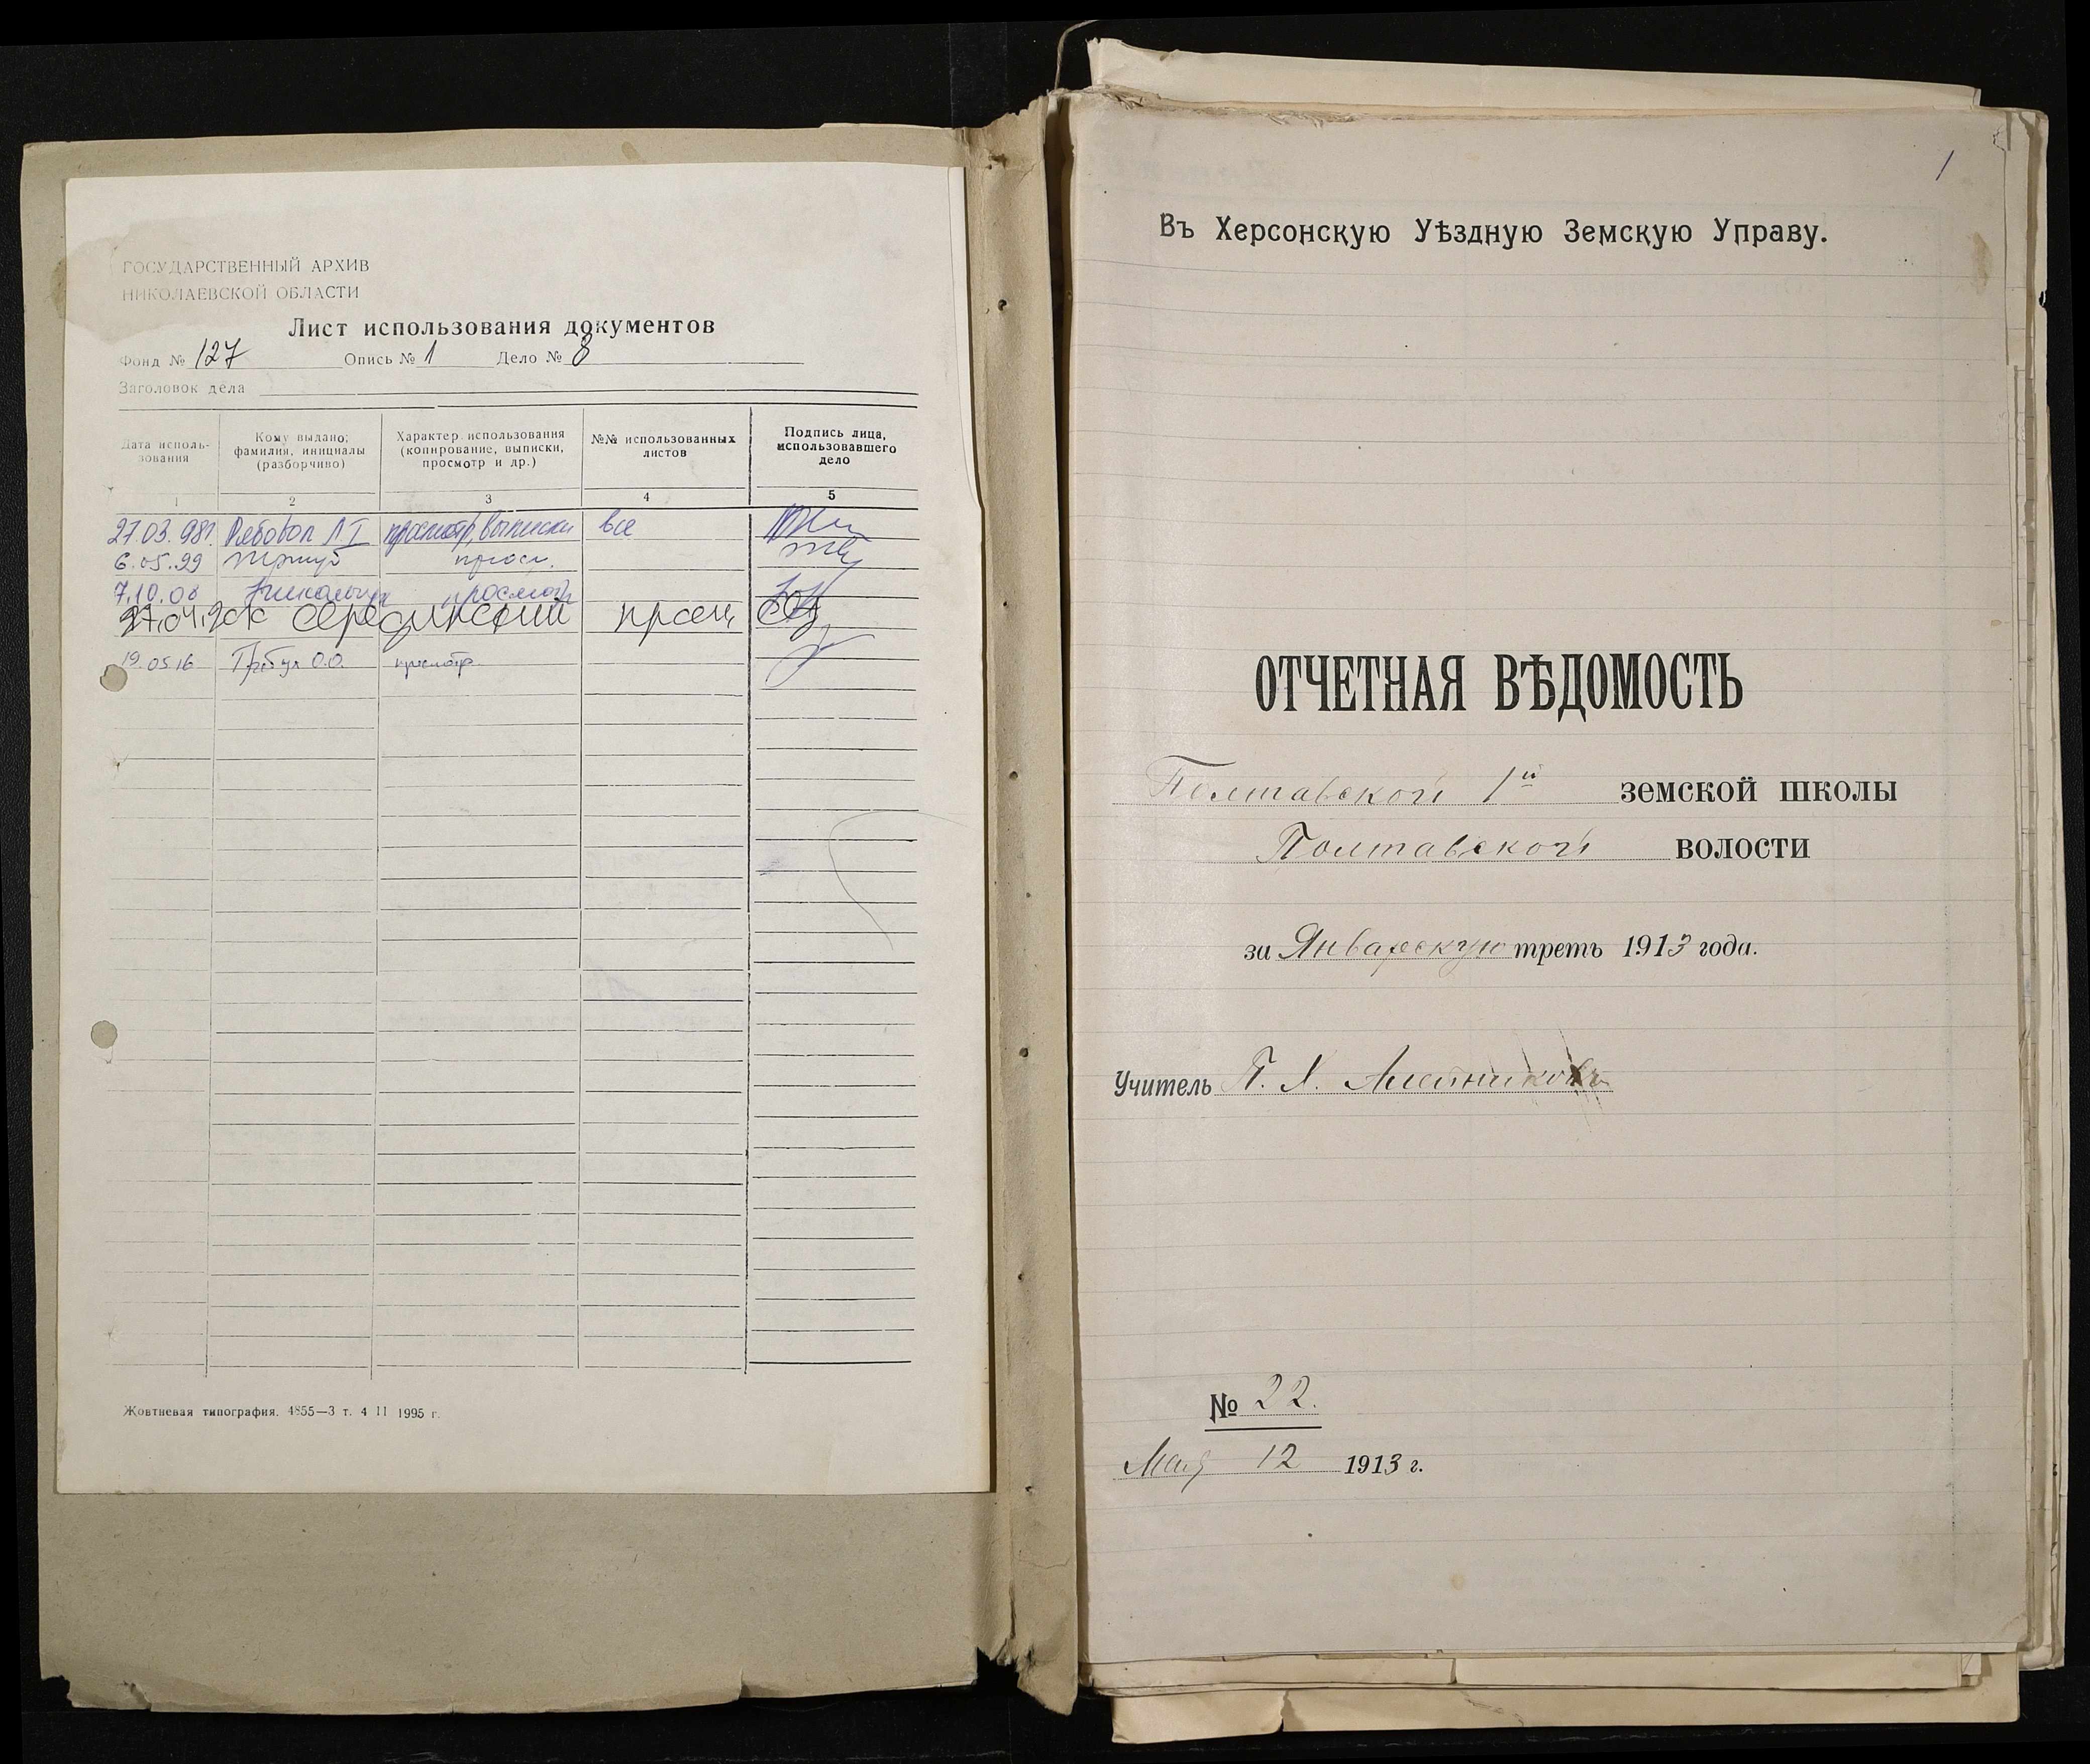 ГОСУДАРСТВЕННЫЙ АРХИВ
НИКОЛАЕВСКОЙ ОБЛАСТИ
Лист использования документов
Фонд № 127 Опись № 1 Дело № 8
Заголовок дела
Дата исполь-
зования
Кому выдано;
фамилия, инициалы
(разборчиво)
Характер использования
(копирование, выписки,
просмотр и др.)
№№ использованных
листов
Подпись лица,
использовавшего
дело
1 2 3 4 5
27.03.98г. просмотр, выписки все
6.05.99 просм.
7.10.08 просмотр
27.04. Серединский просм
19.05.16 О.О. просмотр
Жовтневая типография. 4855—3 т. 4 11 1995 г.
1
Въ Херсонскую Уѣздную Земскую Управу.
ОТЧЕТНАЯ ВѢДОМОСТЬ
Полтавской 1й земской школы
Полтавской волости
за Январскую треть 1913 года.
Учитель П. Я.
№ 22.
Мая 12 1913 г.